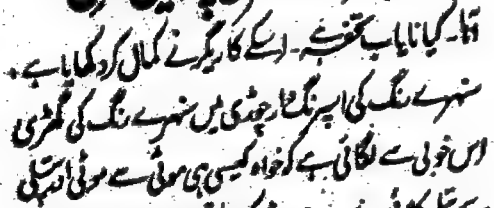 اوتا۔ کیا نایاب تحفہ ہے۔ اسکے کاریگر نے کمال کر دکھایا ہے۔
سنہرے رنگ کی اسپرنگدار چوڑی میں سنہرے رنگ کی گھڑی
اس خوبی سے لگائی ہے کہ خواہ کیسی ہی موٹی سے موٹی اور پتلی